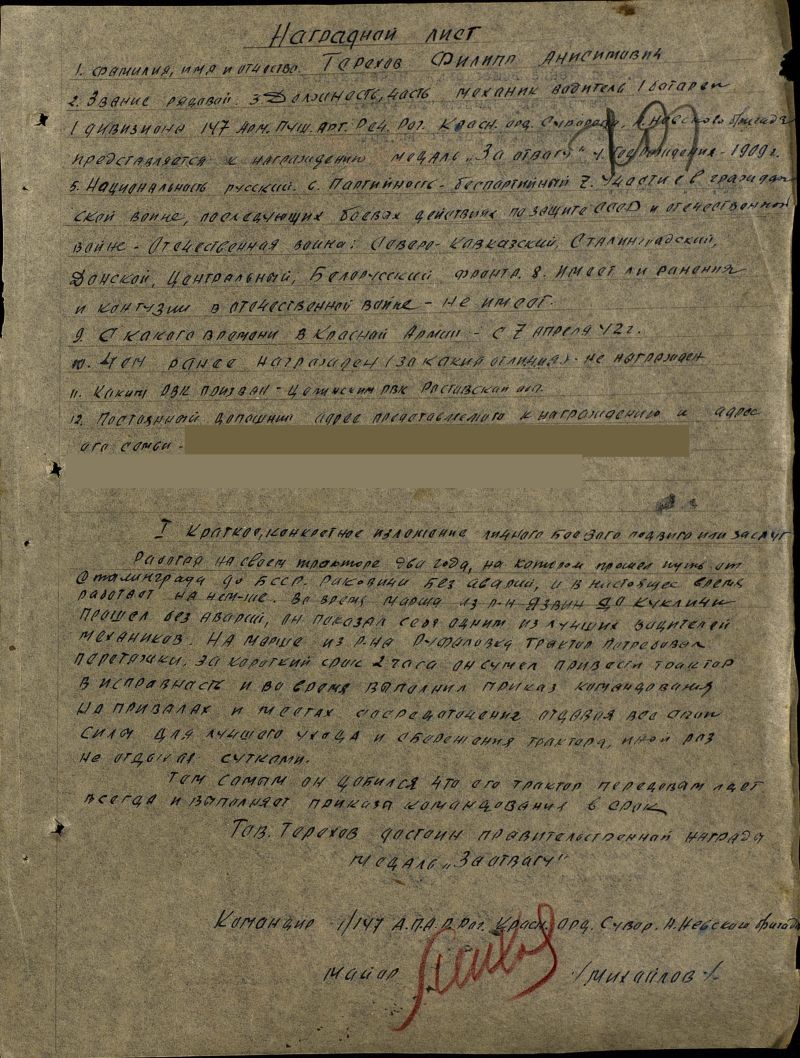 Наградной лист
1. Фамилия, имя и отчество. Терехов Филипп Анисимович
2. Звание рядовой. 3 Должность, часть механик водитель 1 батареи
1 дивизиона 147 Арм. Пуш. Арт. Реч. Рог. Красн. орд. Суворова, А. Невского бригада
представляется к награждению медаль „За отвагу" 4. Год рождения - 1909 г.
5. Национальность русский. 6. Партийность - беспартийный 7. Участие в граждан
ской войне, последующих боевых действиях по защите СССР и отечественной
войне - Отечественная война: Северо-Кавказский, Сталинградский,
Донской, Центральный, Белорусский фронт. 8. Имеет ли ранения
и контузии в отечественной войне - не имеет.
9. С какого времени в Красной Армии - с 7 апреля 42 г.
10. Чем ранее награжден (за какие отличия) - не награжден
11. Каким РВК призван - Целинским РВК Ростовской обл.
12. Постоянный домашний адрес представляемого к награждению и адрес
его семьи -
I Краткое, конкретное изложение личного боевого подвига или заслуг
Работая на своем тракторе два года, на котором прошел путь от
Сталинграда до БССР. Раковичи без аварий, и в настоящее время
работает на нем-же. Во время марша из р-н Язвин до Кукличи
прошел без аварий, он показал себя одним из лучших водителей
механиков. На марше из р-на трактор потребовал
перетяжки. За короткий срок 2 часа он сумел привести трактор
в исправность и во время выполнил приказ командования
На привалах и местах сосредоточение отдавая все свои
силы для лучшего ухода и сбережения трактора, иной раз
не отдыхая сутками.
Тем самым он добился что его трактор передовым идет
всегда и выполняет приказа командования в срок
Тов. Терехов достоин правительственной награда
медаль „За отвагу"
Командир 1/147 А.П.А.Р. Рог. Красн. Орд. Сувор. А. Невской бригады
майор /Михайлов/.